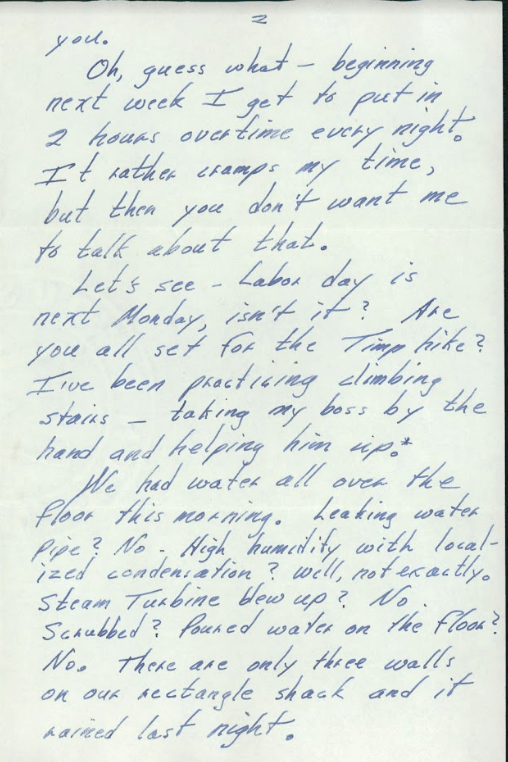 2
you.
Oh, guess what — beginning
next week I get to put in
2 hours overtime every night.
It rather cramps my time,
but then you don't want me
to talk about that.
Let's see — Labor day is
next Monday, isn't it? Are
you all set for the Timp hike?
I've been practicing climbing
stairs — taking my boss by the
hand and helping him up.*
We had water all over the
floor this morning. Leaking water
pipe? No - High humidity with local-
ized condensation? Well, not exactly.
Steam Turbine blew up? No
Scrubbed? Poured water on the floor?
No. There are only three walls
on our rectangle shack and it
rained last night.